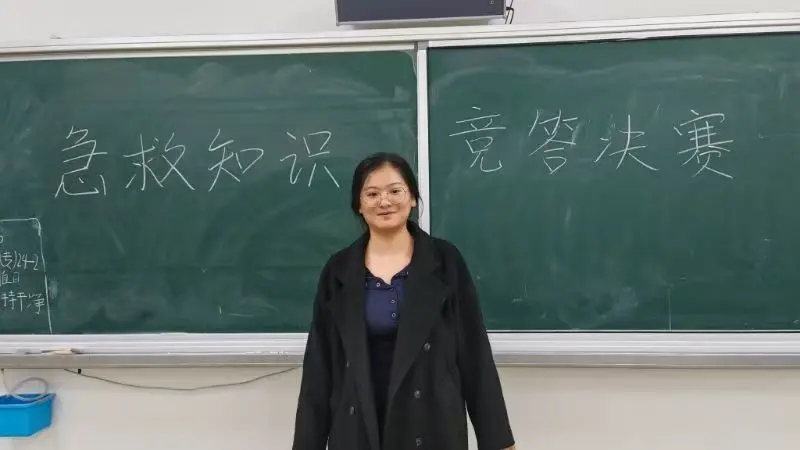 急救知识 竞答决赛
24-2
值日
持干净